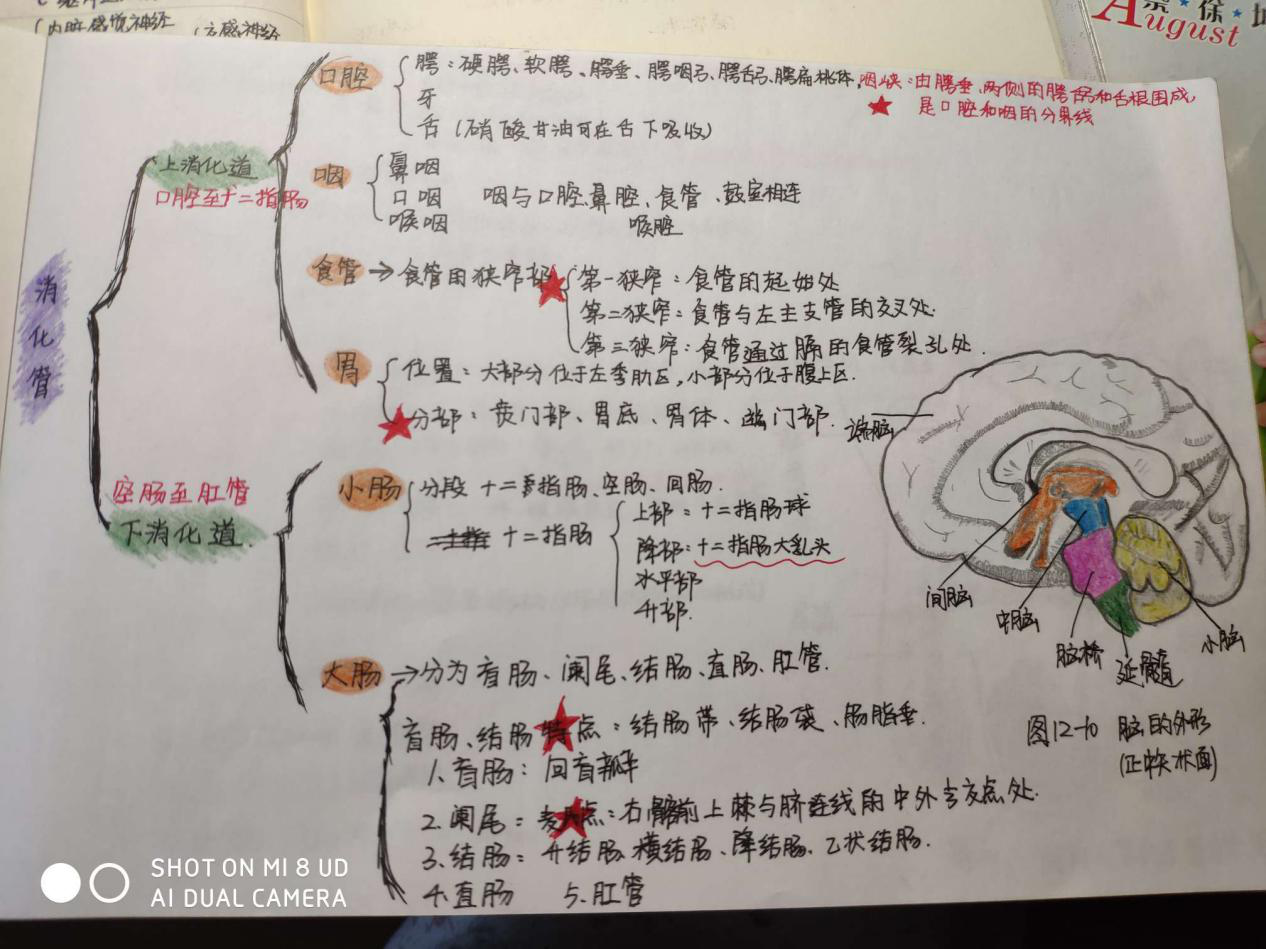 (内脏感觉神经
(交感神经
August
消化管
上消化道
口腔至十二指肠
口腔
腭：硬腭、软腭、腭垂、腭咽弓、腭舌弓、腭扁桃体,
咽峡：由腭垂、两侧的腭舌弓和舌根围成,
是口腔和咽的分界线
牙
舌（硝酸甘油可在舌下吸收）
咽
鼻咽
口咽 咽与口腔、鼻腔、食管、鼓室相连
喉咽 喉腔
食管 → 食管的狭窄部
第一狭窄：食管的起始处
第二狭窄：食管与左主支管的交叉处.
第三狭窄：食管通过膈的食管裂孔处.
胃
位置：大部分位于左季肋区,小部分位于腹上区.
分部：贲门部、胃底、胃体、幽门部.
空肠至肛管
下消化道
小肠
分段 十二指肠、空肠、回肠.
十二指肠
上部：十二指肠球
降部：十二指肠大乳头
水平部
升部.
大肠 → 分为盲肠、阑尾、结肠、直肠、肛管.
盲肠、结肠特点：结肠带、结肠袋、肠脂垂.
1.盲肠：回盲瓣
2.阑尾：麦氏点：右髂前上棘与脐连线的中外1/3交点处.
3.结肠：升结肠、横结肠、降结肠、乙状结肠.
4.直肠 5.肛管
端脑
间脑
中脑
脑桥
延髓
小脑
图12-10 脑的外形
(正中矢状面)
SHOT ON MI 8 UD
AI DUAL CAMERA